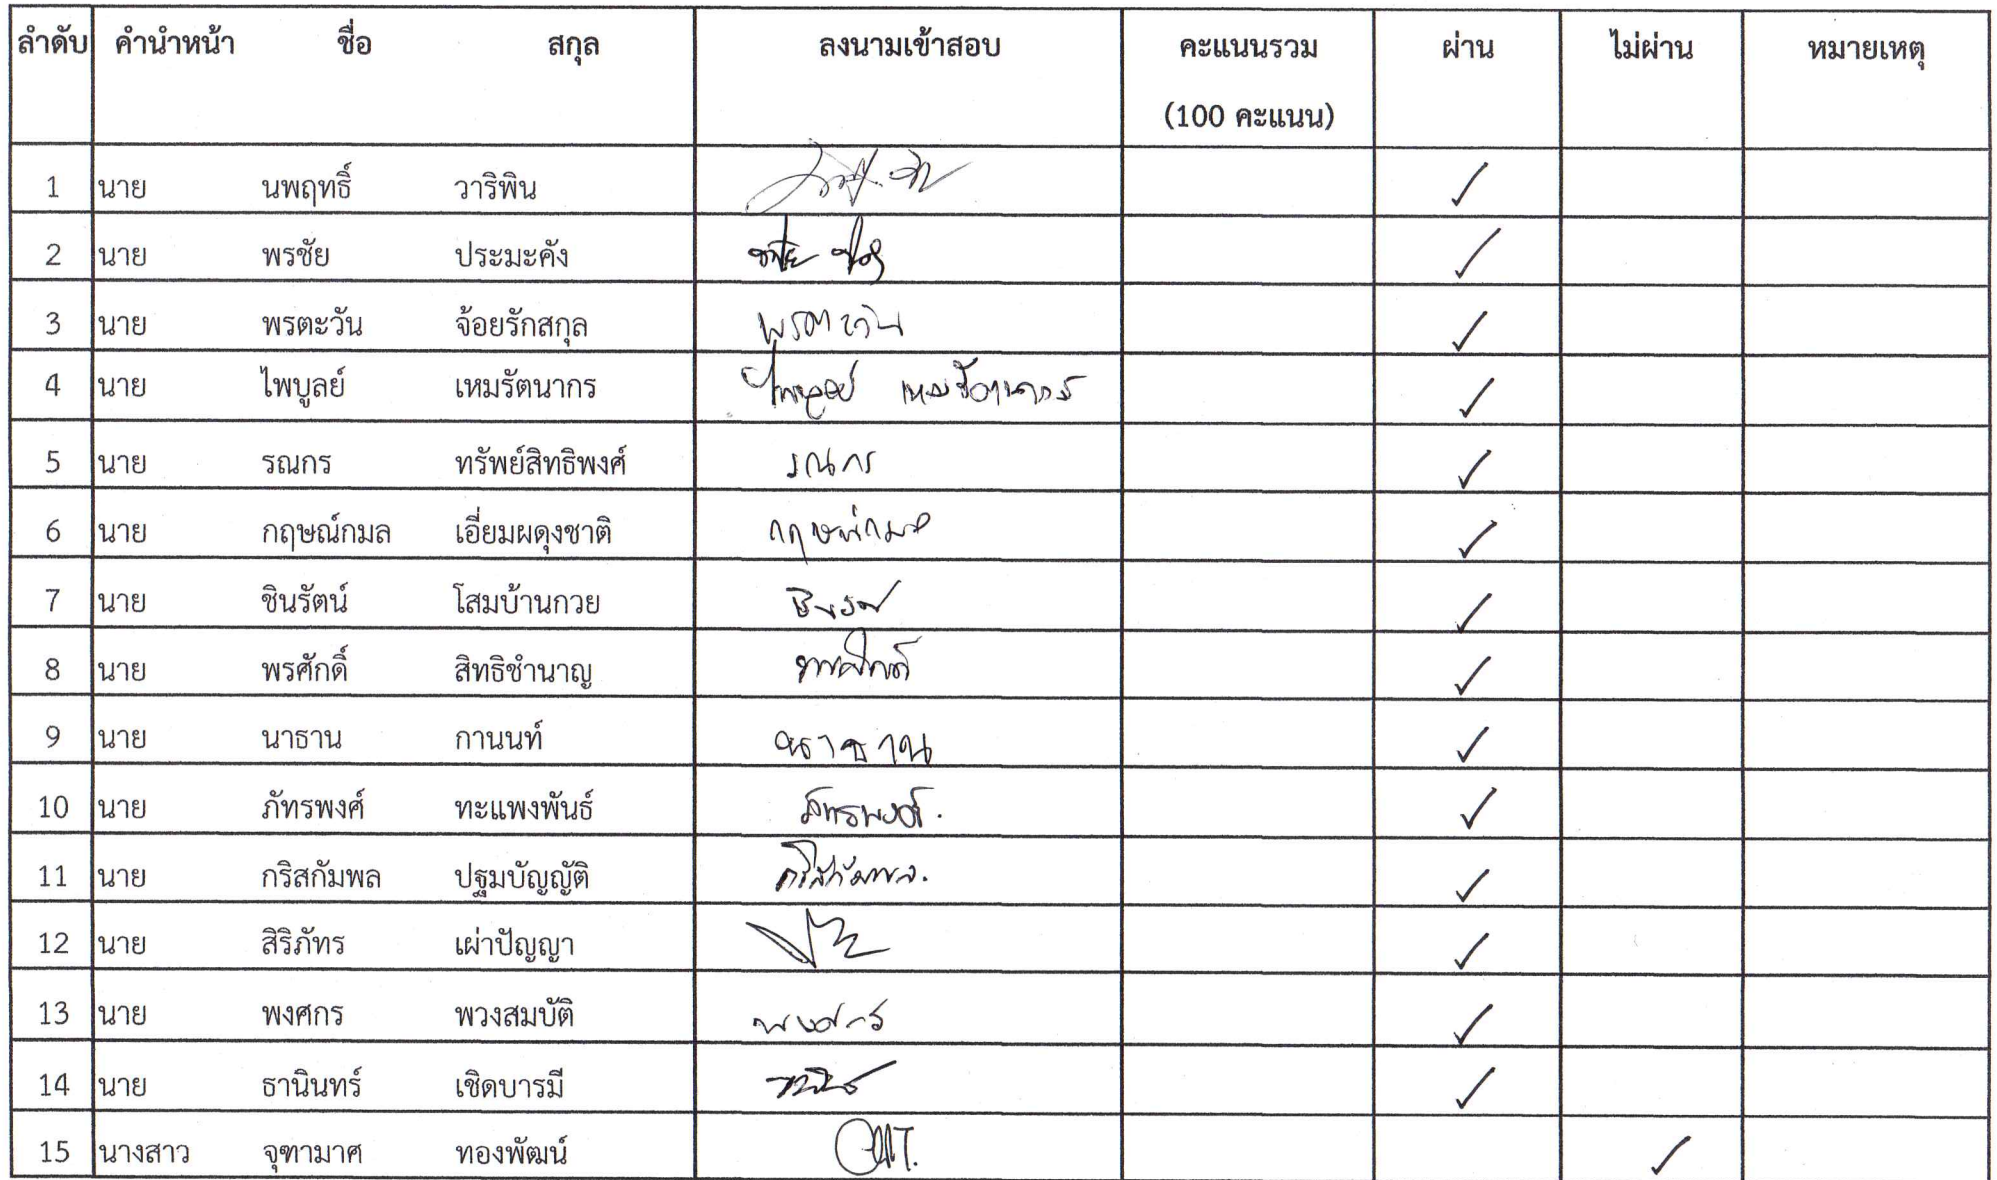 ลำดับ คำนำหน้า ชื่อ สกุล ลงนามเข้าสอบ คะแนนรวม ผ่าน ไม่ผ่าน หมายเหตุ
(100 คะแนน)
1 นาย นพฤทธิ์ วาริพิน
2 นาย พรชัย ประมะคัง
3 นาย พรตะวัน จ้อยรักสกุล พรตะวัน
4 นาย ไพบูลย์ เหมรัตนากร ไพบูลย์ เหมรัตนากร
5 นาย รณกร ทรัพย์สิทธิพงศ์ รณกร
6 นาย กฤษณ์กมล เอี่ยมผดุงชาติ กฤษณ์กมล
7 นาย ชินรัตน์ โสมบ้านกวย
8 นาย พรศักดิ์ สิทธิชำนาญ พรศักดิ์
9 นาย นาธาน กานนท์ นาธาน
10 นาย ภัทรพงศ์ ทะแพงพันธ์ ภัทรพงศ์.
11 นาย กริสกัมพล ปฐมบัญญัติ กริสกัมพล.
12 นาย สิริภัทร เผ่าปัญญา
13 นาย พงศกร พวงสมบัติ พงศกร
14 นาย ธานินทร์ เชิดบารมี
15 นางสาว จุฑามาศ ทองพัฒน์